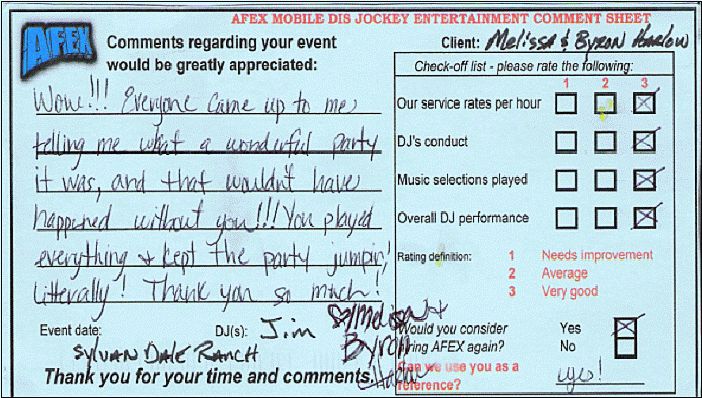 AFEX MOBILE DIS JOCKEY ENTERTAINMENT COMMENT SHEET
AFEX
Comments regarding your event
would be greatly appreciated:
Client: Melissa & Byron Harlow
Wow!!! Everyone came up to me
telling me what a wonderful party
it was, and that wouldn't have
happened without you!!! You played
everything & kept the party jumpin'
Litterally! Thank you so much!
Melissa &
Byron
Event date:
DJ(s): Jim
Sylvan Dale Ranch
Thank you for your time and comments.
Check-off list - please rate the following:
1 2 3
Our service rates per hour
DJ's conduct
Music selections played
Overall DJ performance
Rating definition: 1 Needs improvement
2 Average
3 Very good
Would you consider Yes
hiring AFEX again? No
Can we use you as a
reference? yes!